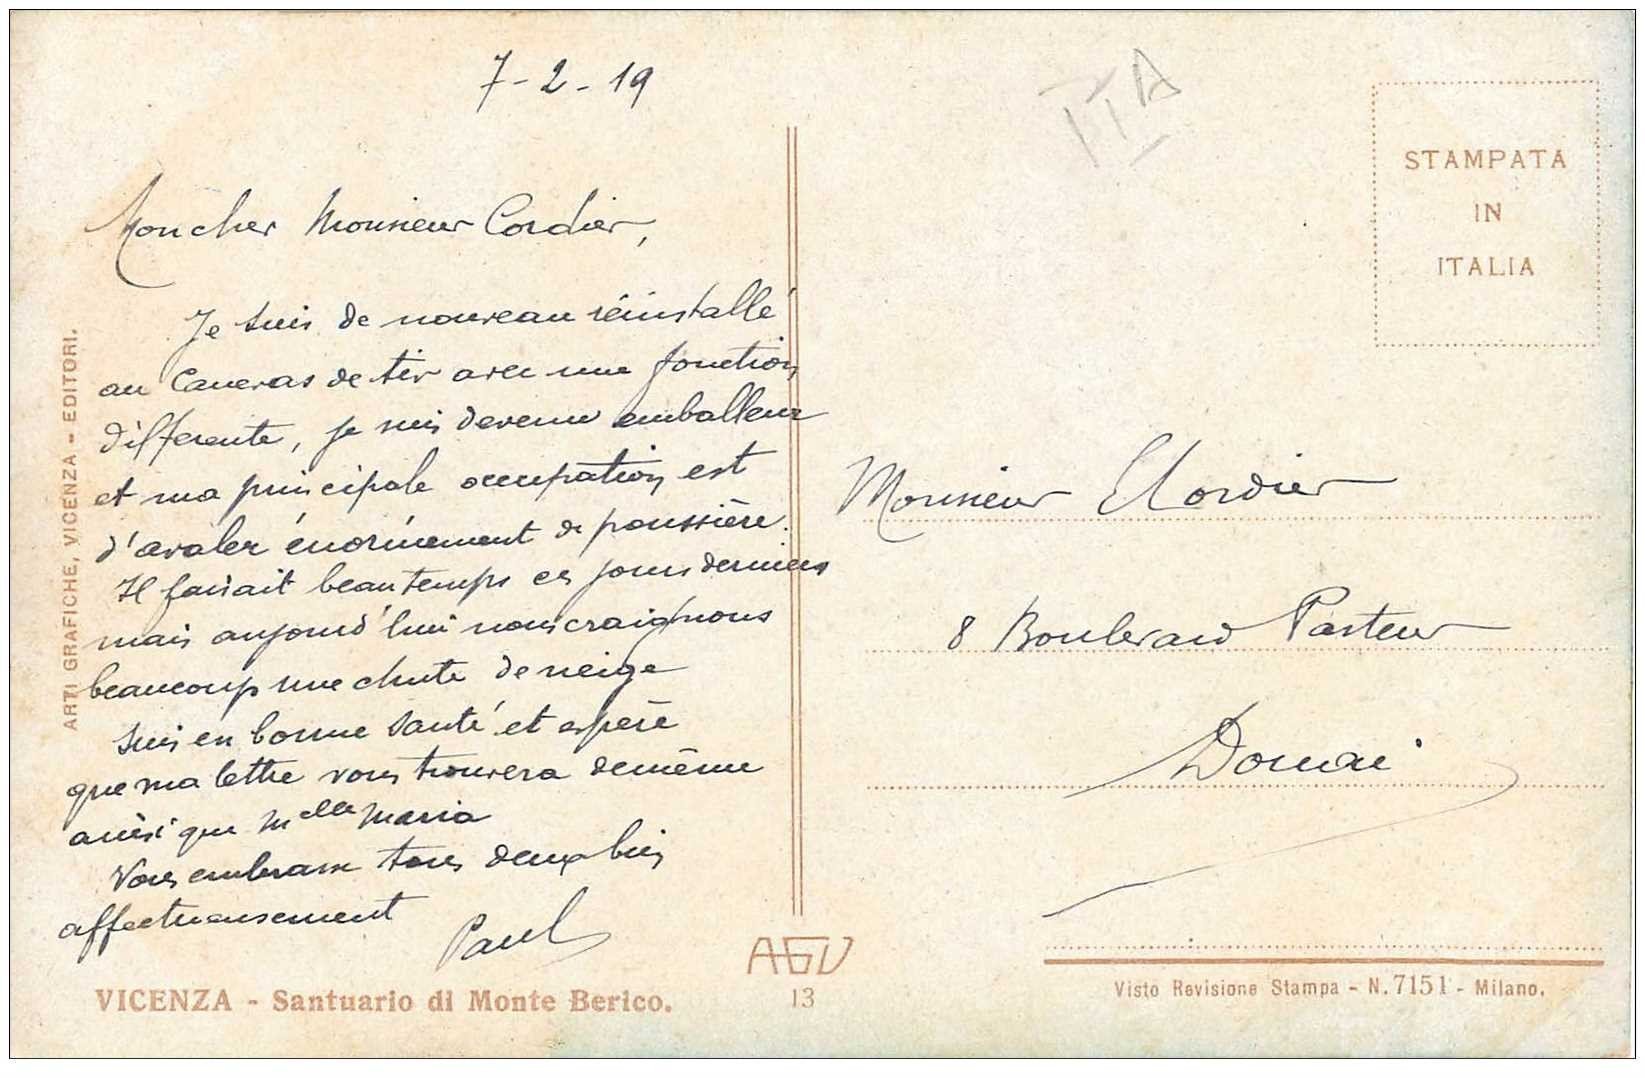 7-2-19
Mon cher Monsieur Cordier,
Je suis de nouveau réinstallé
au Caneras de tir avec une fonction
différente, je suis devenu emballeur
et ma principale occupation est
d'avaler énormément de poussière.
Il faisait beau temps ces jours derniers
mais aujourd'hui nous craignons
beaucoup une chute de neige
Suis en bonne santé et espère
que ma lettre vous trouvera de même
ainsi que Melle Maria
Vous embrasse tous deux bien
affectueusement
Paul
ARTI GRAFICHE, VICENZA - EDITORI.
VICENZA - Santuario di Monte Berico.
AGV
13
ITA
STAMPATA
IN
ITALIA
Monsieur Cordier
8 Boulevard Pasteur
Douai
Visto Revisione Stampa - N. 7151 - Milano.